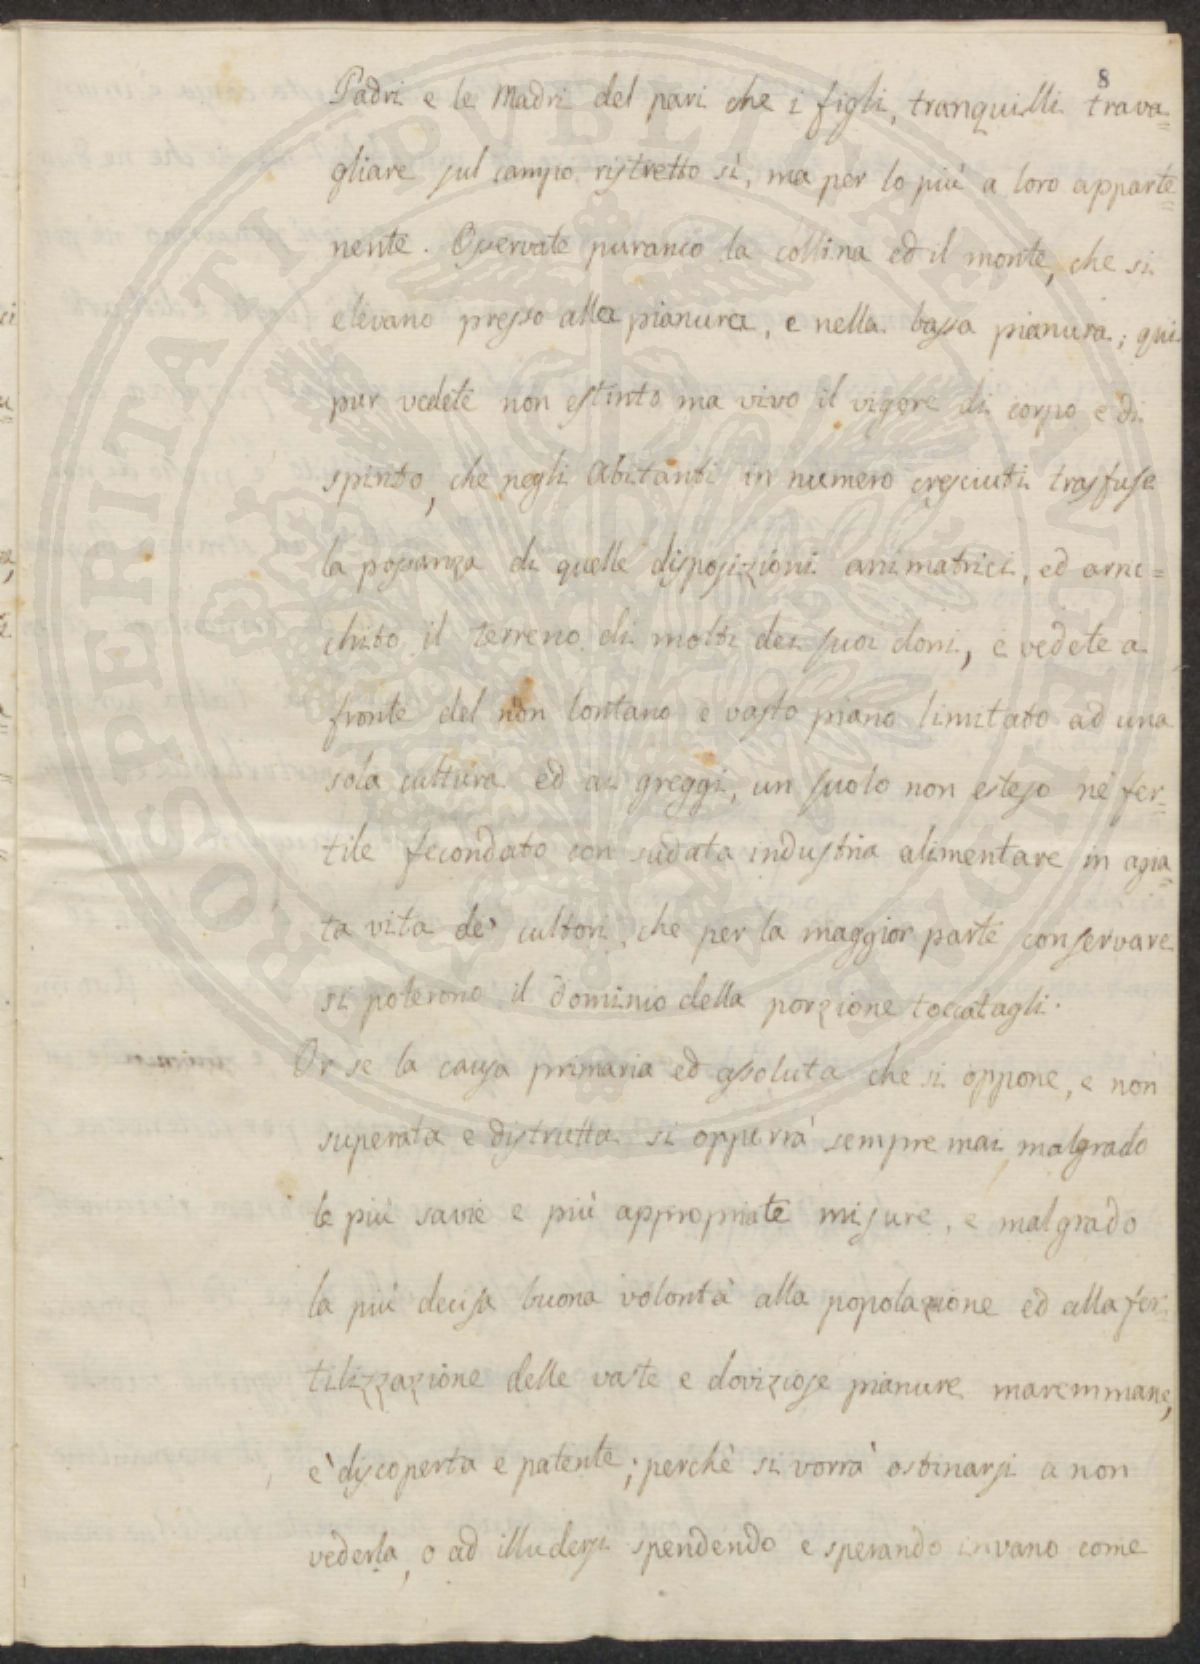 8
Padri e le Madri del pari che i figli, tranquilli trava=
gliare sul campo ristretto sì, ma per lo più a loro apparte=
nente. Osservate puranco la collina ed il monte, che si
elevano presso alla pianura, e nella bassa pianura; qui
pur vedete non estinto ma vivo il vigore di corpo e di
spirito, che negli Abitanti in numero cresciuti trasfuse
la possanza di quelle disposizioni animatrici, ed arric=
chito il terreno di molti dei suoi doni, e vedete a
fronte del non lontano e vasto piano limitato ad una
sola cultura ed ai greggi, un suolo non esteso né fer=
tile fecondato con sudata industria alimentare in agia=
ta vita de' cultori, che per la maggior parte conservare
si poterono il dominio della porzione toccatagli.
Or se la causa primaria ed assoluta che si oppone, e non
superata e distrutta si opporrà sempre mai, malgrado
le più savie e più appropriate misure, e malgrado
la più decisa buona volontà alla popolazione ed alla fer=
tilizzazione delle vaste e doviziose pianure maremmane,
è discoperta e patente; perchè si vorrà ostinarsi a non
vederla, o ad illudersi spendendo e sperando invano come
PROSPERITATI PVBLICAE AVGENDAE